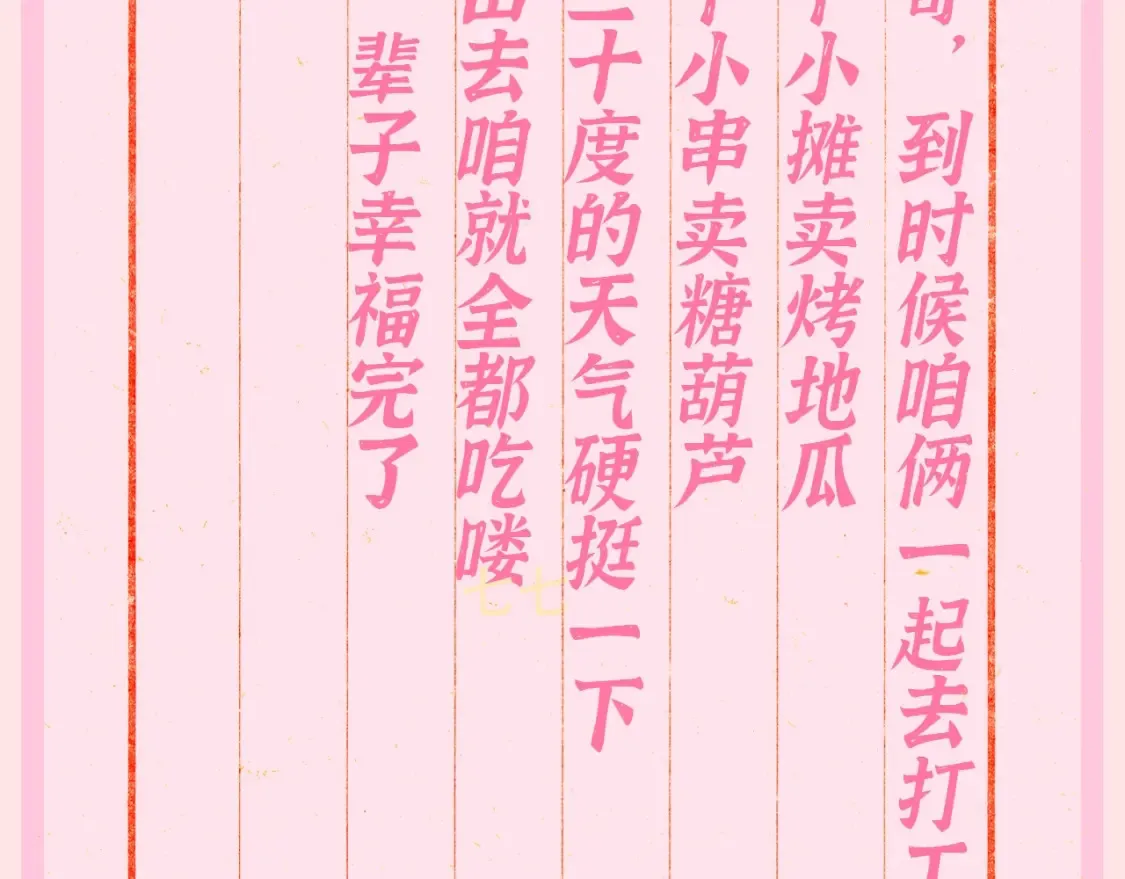 ，到时候咱俩一起去打工
小摊卖烤地瓜
小串卖糖葫芦
二十度的天气硬挺一下
出去咱就全都吃喽
辈子幸福完了
七七